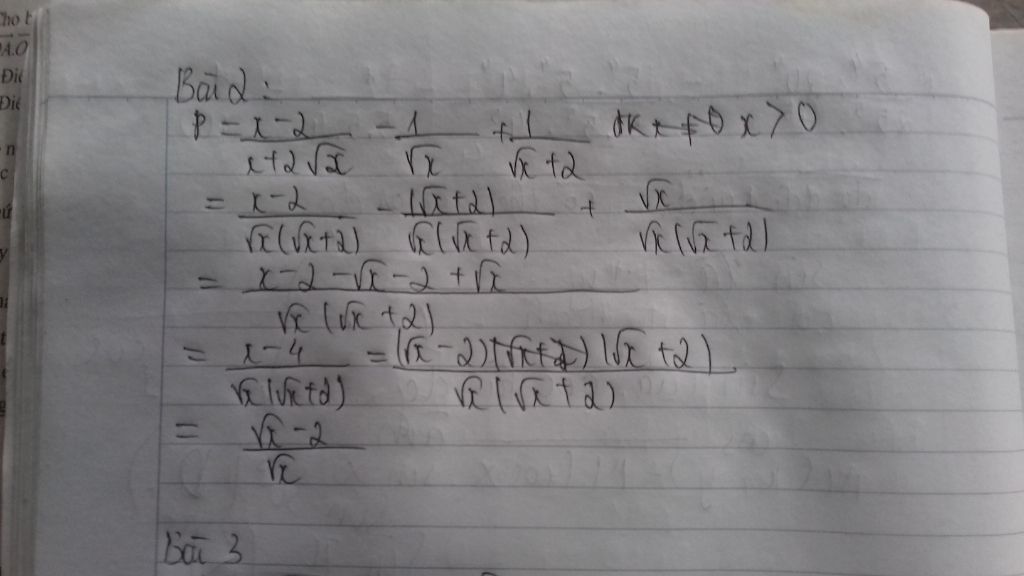 Bài 2:
P = \frac{x-2}{x+2\sqrt{x}} - \frac{1}{\sqrt{x}} + \frac{1}{\sqrt{x}+2} ĐK x ≠ 0 x > 0
= \frac{x-2}{\sqrt{x}(\sqrt{x}+2)} - \frac{(\sqrt{x}+2)}{\sqrt{x}(\sqrt{x}+2)} + \frac{\sqrt{x}}{\sqrt{x}(\sqrt{x}+2)}
= \frac{x-2-\sqrt{x}-2+\sqrt{x}}{\sqrt{x}(\sqrt{x}+2)}
= \frac{x-4}{\sqrt{x}(\sqrt{x}+2)} = \frac{(\sqrt{x}-2)(\sqrt{x}+2)}{\sqrt{x}(\sqrt{x}+2)}
= \frac{\sqrt{x}-2}{\sqrt{x}}
Bài 3